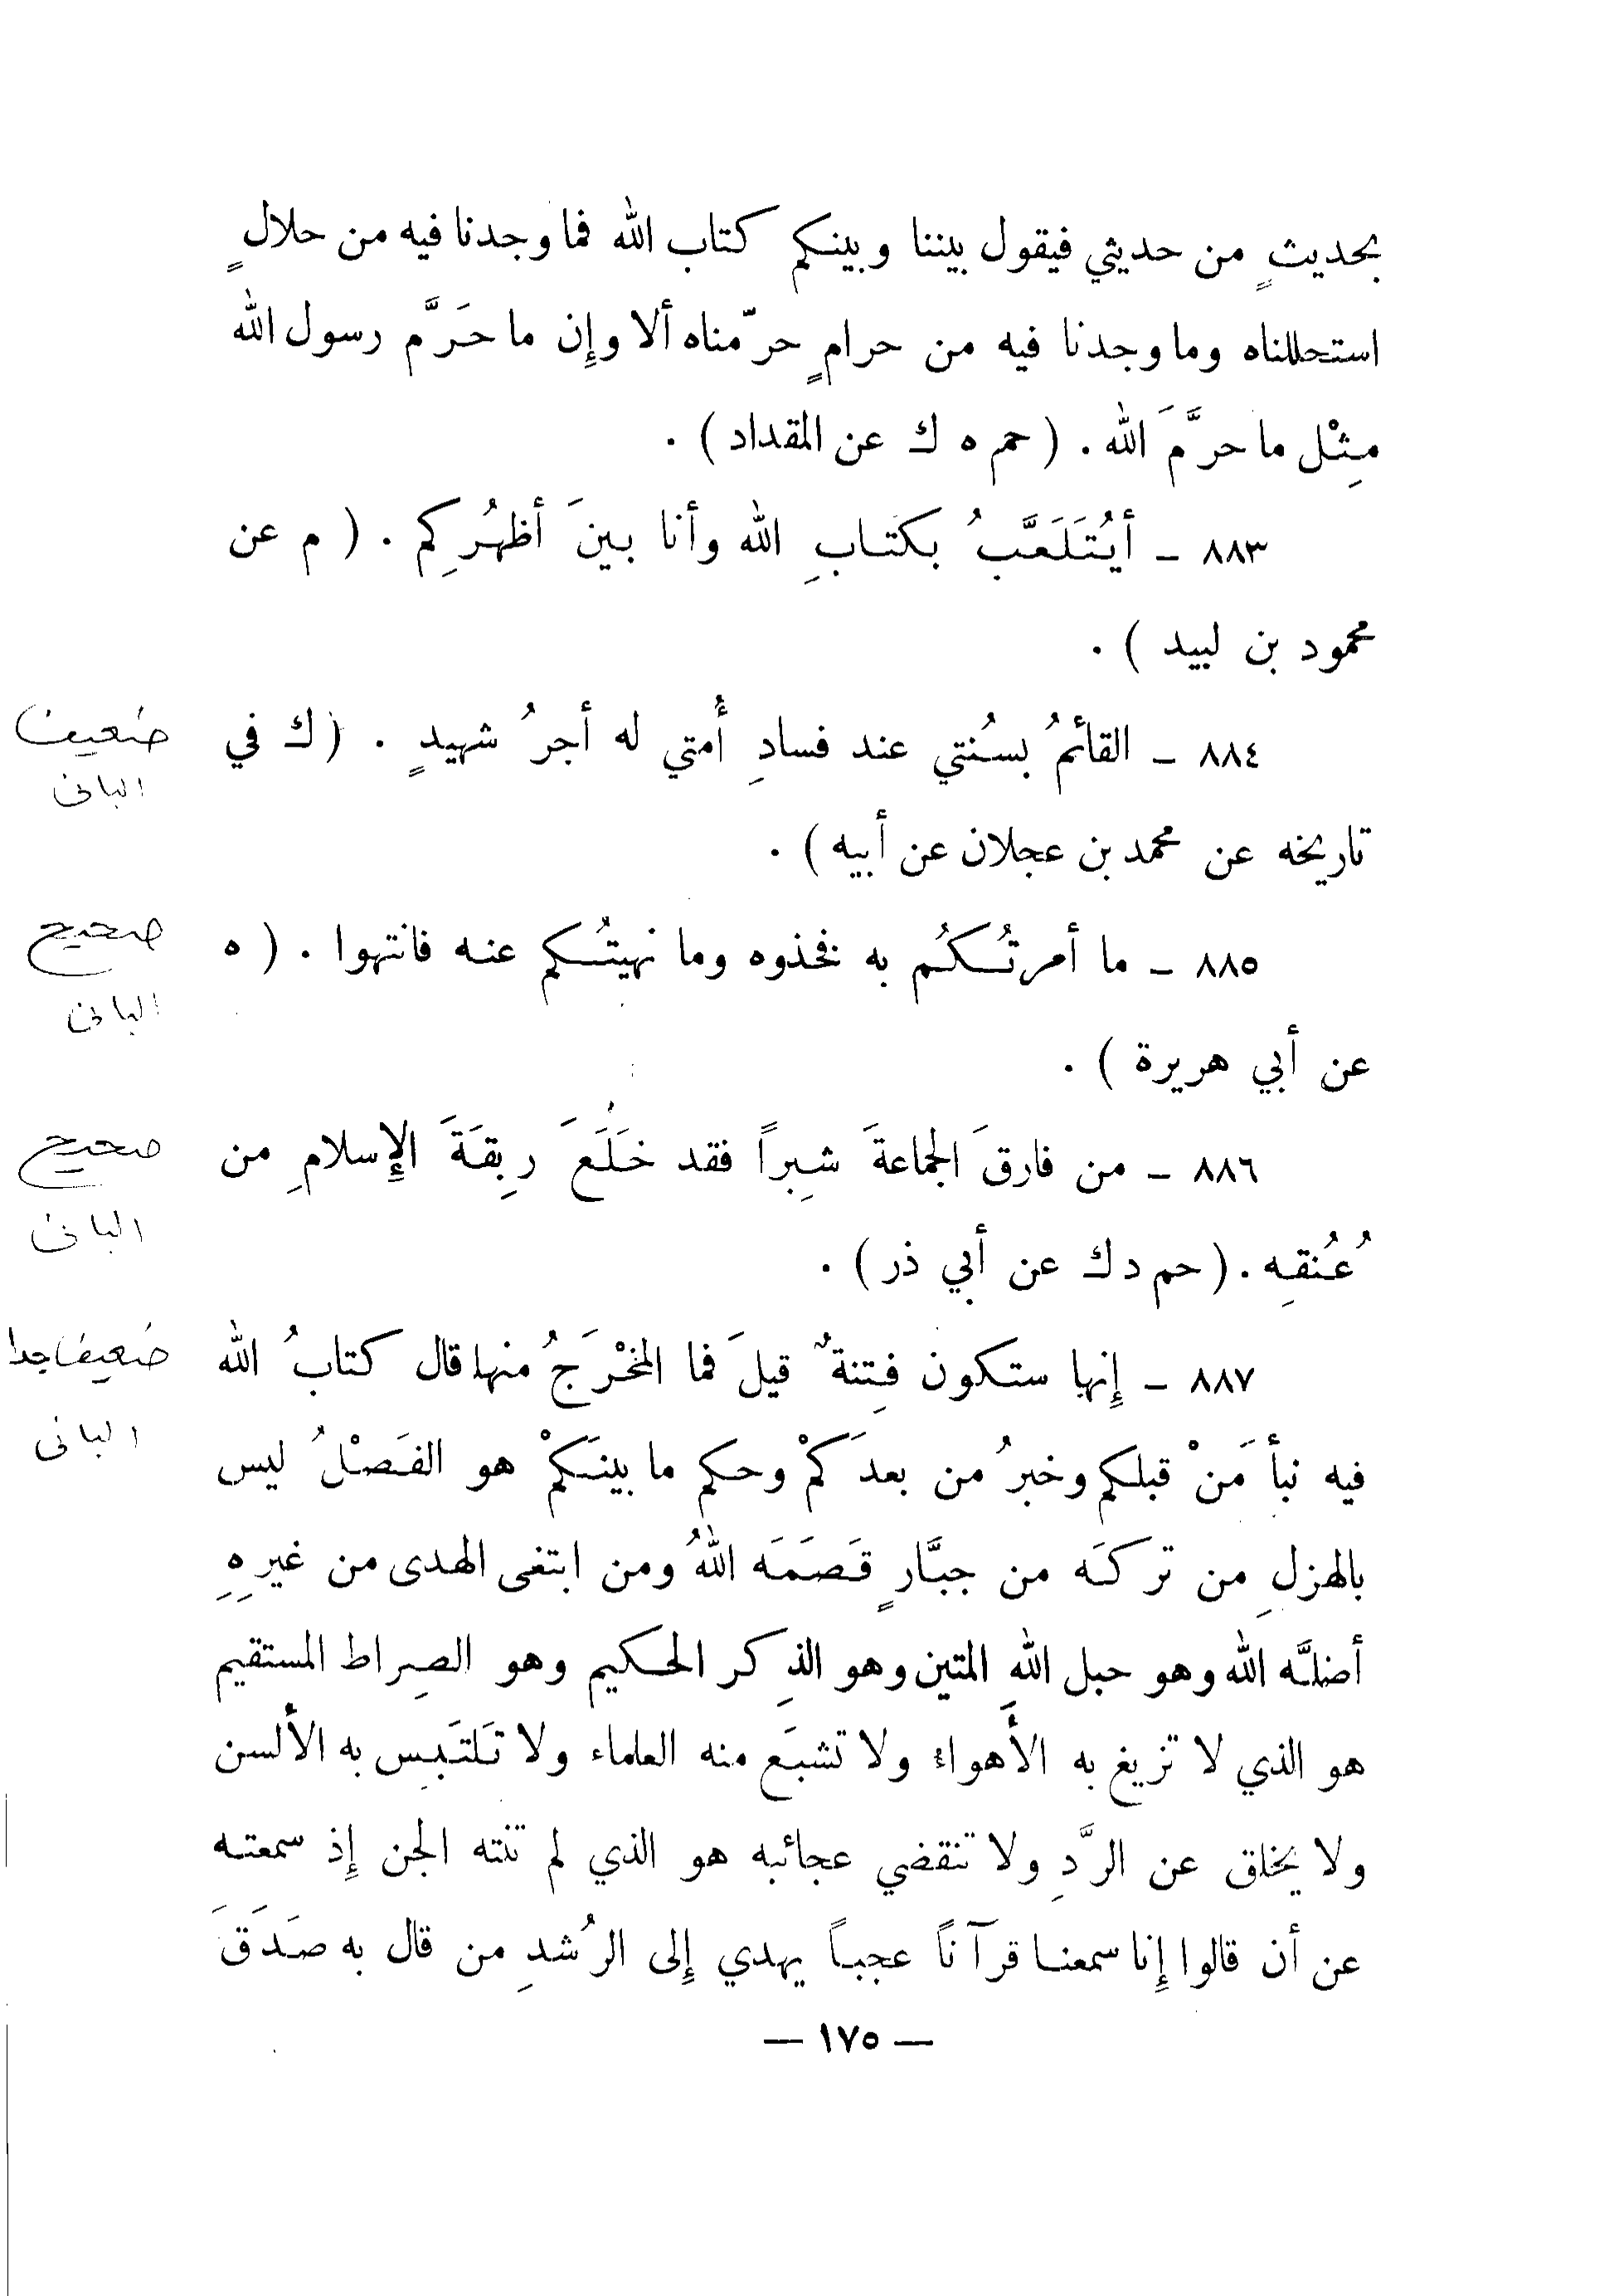 بحديثٍ من حديثي فيقول بيننا وبينكم كتاب الله فما وجدنا فيه من حلالٍ
استحللناه وما وجدنا فيه من حرامٍ حرّمناه ألا وإِن ما حَرَّم رسول الله
مِثْل ما حرَّمَ الله . ( حم ه ك عن المقداد ) .
٨٨٣ – أيُتَلَعَّبُ بكتابِ الله وأنا بينَ أظهُرِكم . ( م عن
محمود بن لبيد ) .
٨٨٤ – القائمُ بسُنتي عند فسادِ أُمتي له أجرُ شهيدٍ . ( ك في
ضعيف
البانى
تاريخه عن محمد بن عجلان عن أبيه ) .
٨٨٥ – ما أمرتُكُم به فخذوه وما نهيتُكم عنه فانتهوا . ( ه
صحيح
البانى
عن أبي هريرة ) .
٨٨٦ – من فارقَ الجماعةَ شِبراً فقد خَلَعَ رِبقَةَ الإِسلامِ من
صحيح
البانى
عُنقِه . ( حم د ك عن أبي ذر ) .
٨٨٧ – إِنها ستكون فِتنةٌ قيلَ فما المَخْرَجُ منها قال كتابُ الله
ضعيف جدا
البانى
فيه نبأ مَنْ قبلكم وخبرُ من بعدَكمْ وحكم ما بينَكمْ هو الفَصْلُ ليس
بالهزلِ من تركَه من جبَّارٍ قَصَمَه اللهُ ومن ابتغى الهدى من غيرِهِ
أضلَّه الله وهو حبل اللهِ المتين وهو الذِكر الحكيم وهو الصِراط المستقيم
هو الذي لا تزيغ به الأَهواء ولا تشبَع منه العلماء ولا تَلتَبِس به الألسن
ولا يخلق عن الرَّدِ ولا تنقضي عجائبه هو الذي لم تنته الجن إِذ سمعته
عن أن قالوا إِنا سمعنا قرآناً عجباً يهدي إِلى الرُشدِ من قال به صَدَقَ
— ١٧٥ —